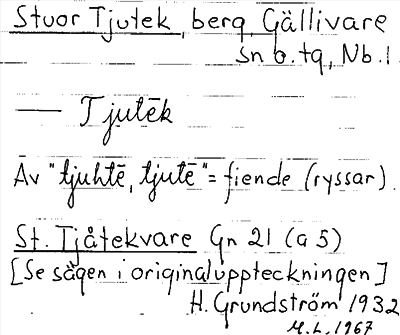 Stuor Tjutek, berg, Gällivare
sn o. tg, Nb. l.
— Tjutēk
Av "tjuhtē, tjutē" = fiende (ryssar).
St. Tjåtekvare Gn 21 (a 5)
[Se sägen i originaluppteckningen]
H. Grundström 1932
M.L. 1967